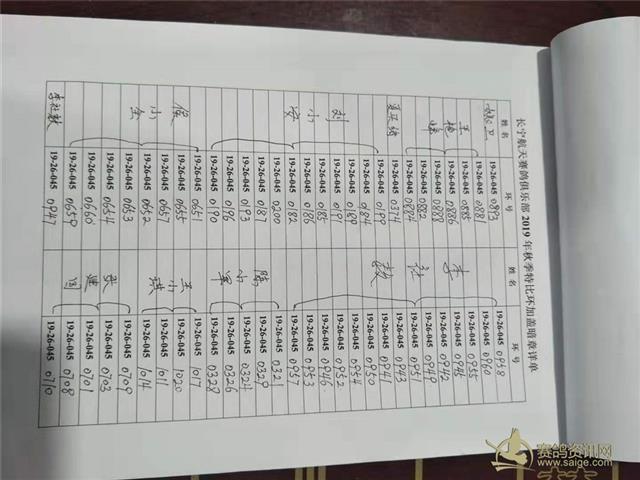 长宁航天赛鸽俱乐部2019年秋季特比环加盖暗章详单
姓名 环号 姓名 环号
19-26-045 0893 19-26-045 0958
19-26-045 0881 19-26-045 0960
王 19-26-045 0885 19-26-045 0955
19-26-045 0886 李 19-26-045 0945
19-26-045 0888 19-26-045 0942
19-26-045 0882 社 19-26-045 0949
19-26-045 0884 19-26-045 0951
19-26-045 0374 教 19-26-045 0943
19-26-045 0199 19-26-045 0941
19-26-045 0184 19-26-045 0950
19-26-045 0189 19-26-045 0954
刘 19-26-045 0191 19-26-045 0952
19-26-045 0185 19-26-045 0946
小 19-26-045 0186 19-26-045 0953
安 19-26-045 0182 19-26-045 0957
19-26-045 0200 19-26-045 0321
19-26-045 0187 19-26-045 0329
19-26-045 0193 小 19-26-045 0324
19-26-045 0196 军 19-26-045 0326
19-26-045 0190 19-26-045 0328
19-26-045 0651 19-26-045 1017
侯 19-26-045 0655 王 19-26-045 1020
小 19-26-045 0657 小 19-26-045 1011
全 19-26-045 0652 琪 19-26-045 1014
19-26-045 0653 19-26-045 0709
19-26-045 0654 张 19-26-045 0703
19-26-045 0660 建 19-26-045 0701
19-26-045 0659 国 19-26-045 0708
李社教 19-26-045 0947 19-26-045 0710
赛鸽资讯网
www.saige.com